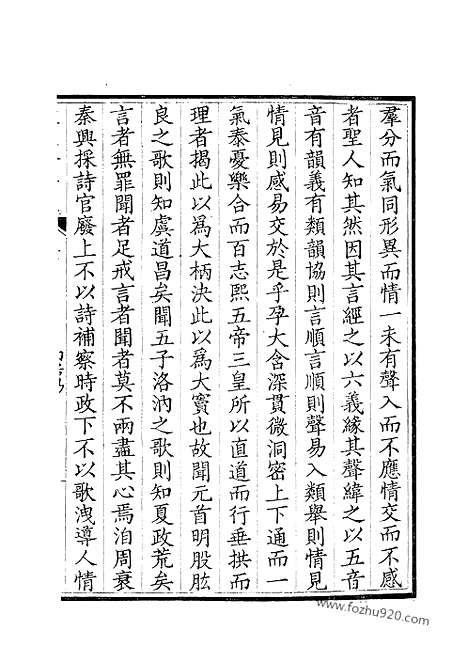 羣分而氣同形異而情一未有聲入而不應情交而不感
者聖人知其然因其言經之以六義緣其聲緯之以五音
音有韻義有類韻協則言順言順則聲易入類舉則情見
情見則感易交於是乎孕大含深貫微洞密上下通而一
氣泰憂樂合而百志熙五帝三皇所以直道而行垂拱而
理者揭此以爲大柄決此以爲大竇也故聞元首明股肱
良之歌則知虞道昌矣聞五子洛汭之歌則知夏政荒矣
言者無罪聞者足戒言者聞者莫不兩盡其心焉洎周衰
秦興採詩官廢上不以詩補察時政下不以歌洩導人情
www.fozhu920.com